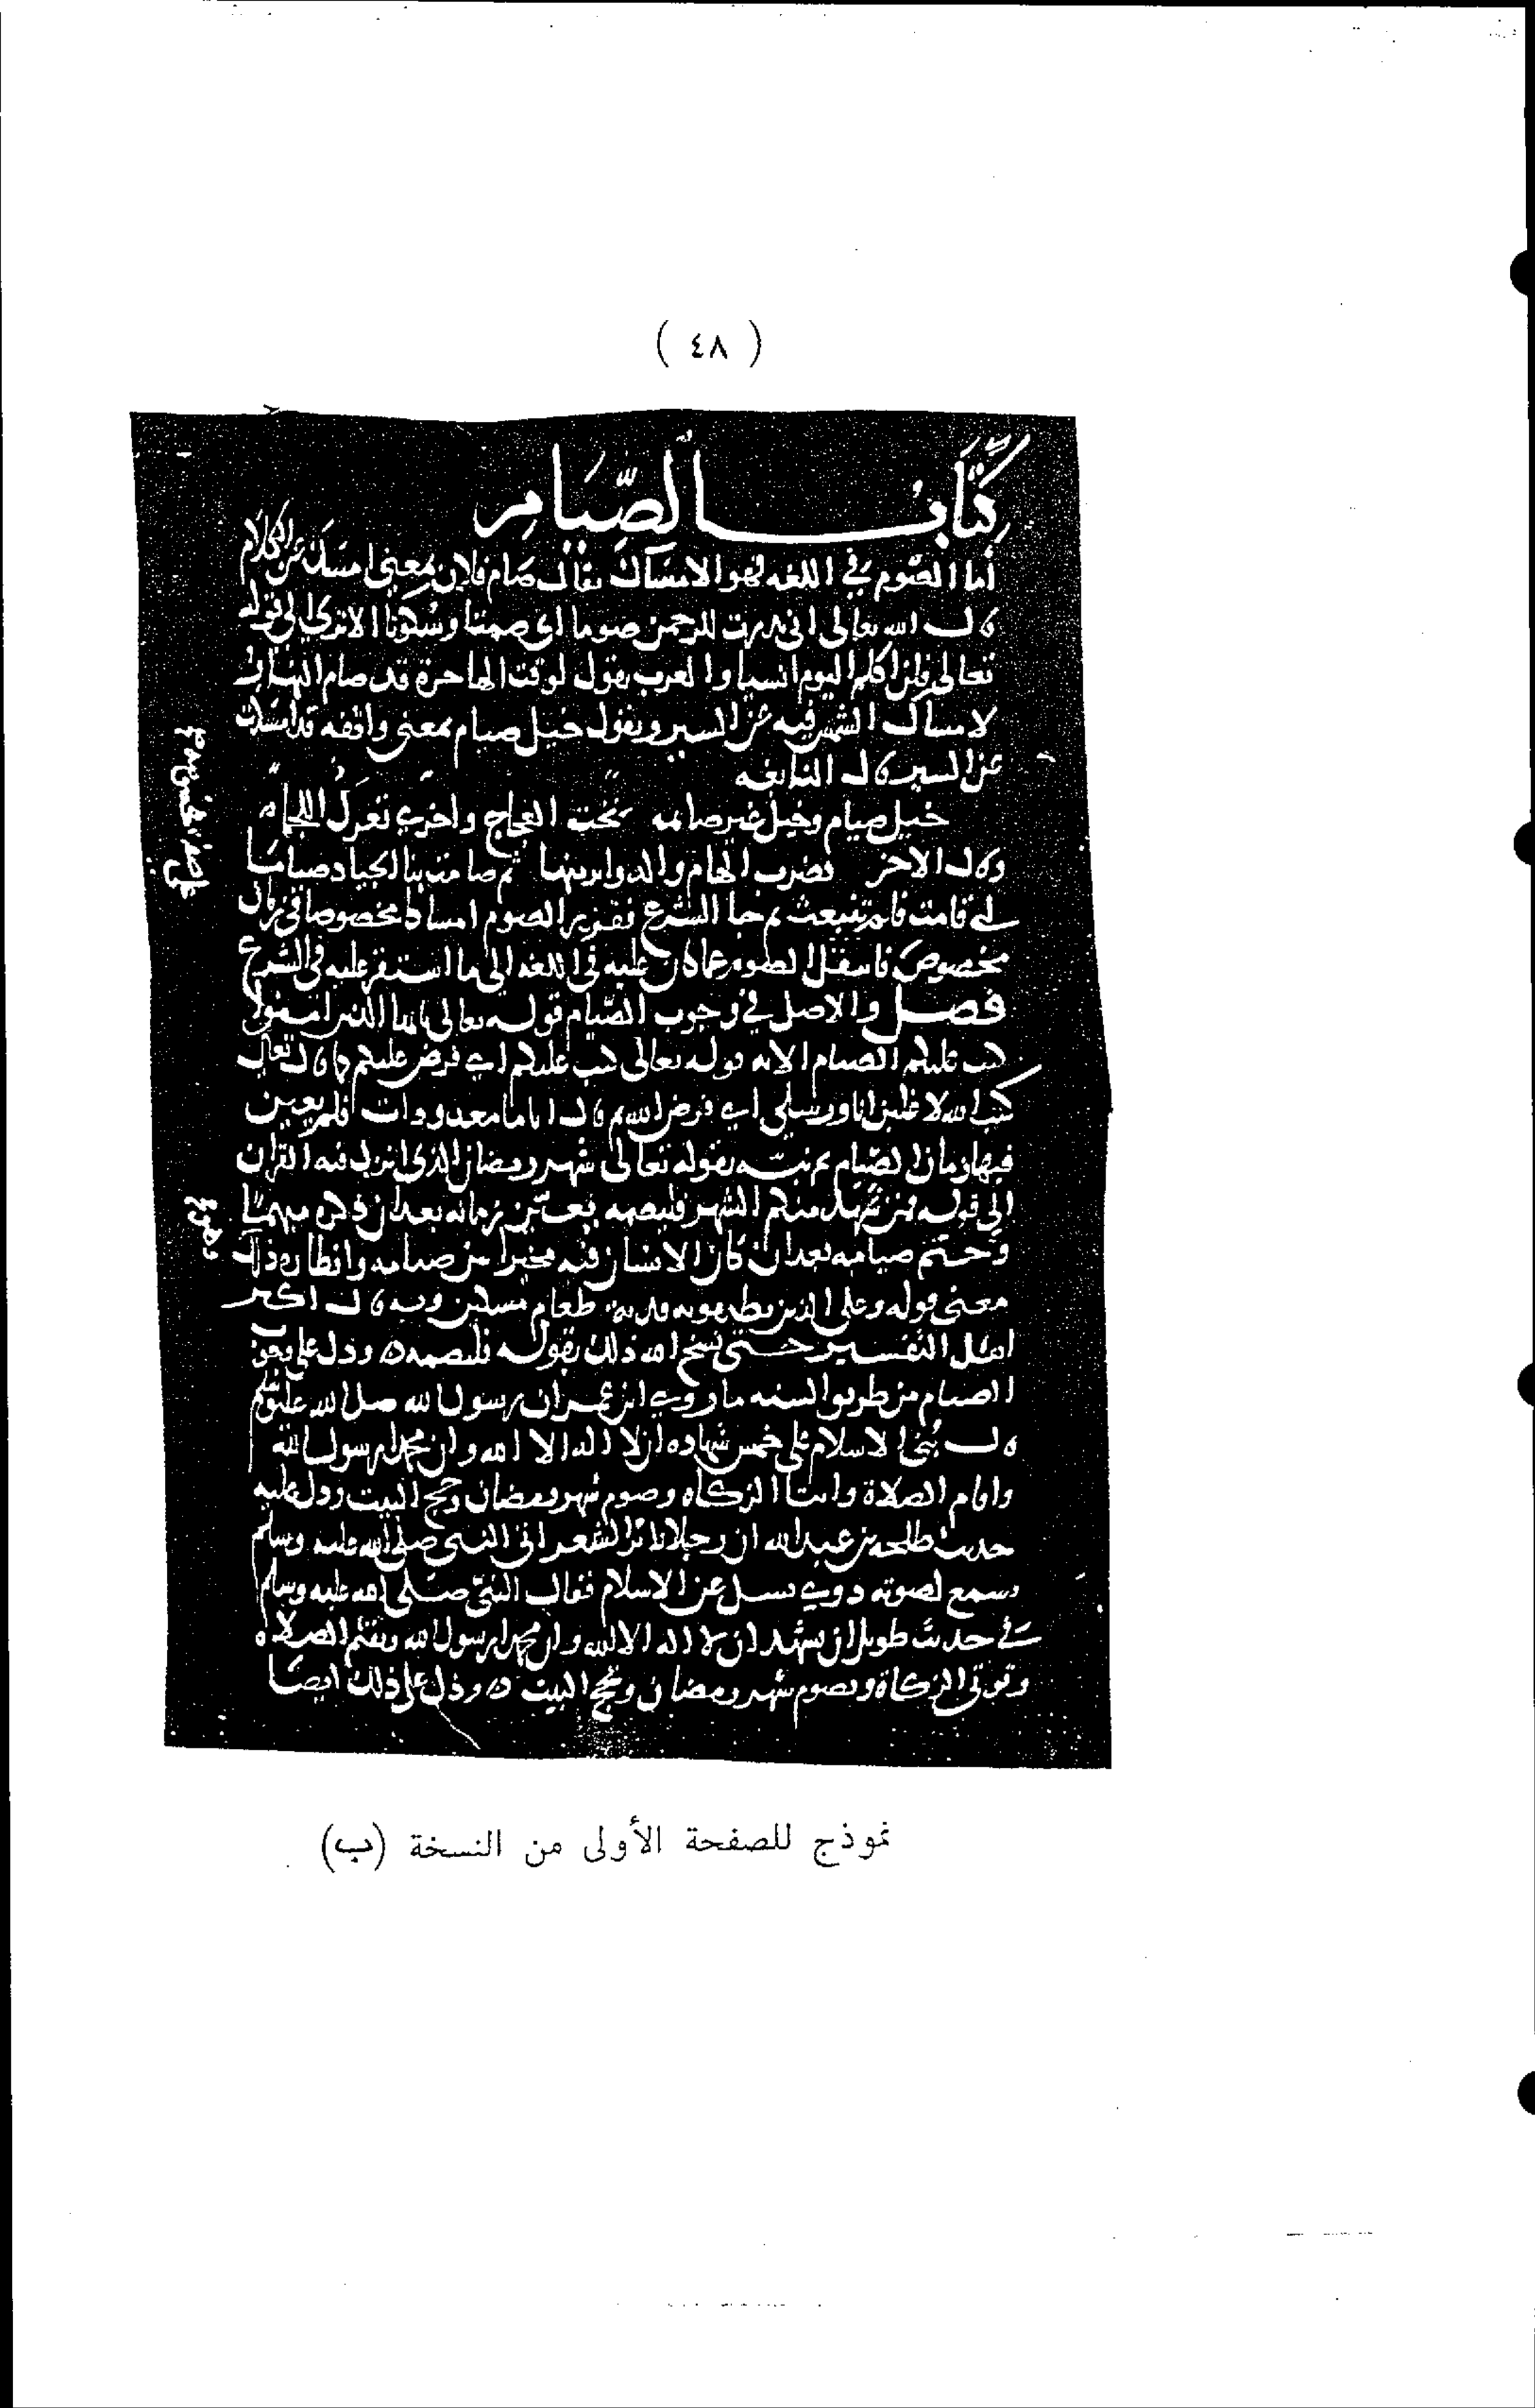 ( ٤٨ )
كتاب الصيام
أما الصوم في اللغه فهو الامساك يقال صام فلان بمعنى امسك عن الكلام
قال الله تعالى انى نذرت للرحمن صوما اى صمتا وسكوتا الا ترى الى قوله
تعالى فلن اكلم اليوم انسيا والعرب يقول لوقت الهاجرة قد صام النهار
لامساك الشمس فيه عن السير ويقول خيل صيام بمعنى واقفه قد امسكت
عن السير قال النابغه
خيل صيام وخيل غير صائمه تحت العجاج واخرى تعرك اللجما
وقال الاخر نضرب الهام والدوابر منها ثم صامت بنا الجياد صياما
اي قامت فلم تنبعث ثم جا الشرع بتقرير الصوم امساكا مخصوصا في زمان
مخصوص فانتقل الصوم عما كان عليه في اللغه الى ما استقر عليه في الشرع
فصل والاصل في وجوب الصيام قوله تعالى يايها الذين امنوا
كتب عليكم الصيام الايه قوله تعالى كتب عليكم اي فرض عليكم كما قال تعالى
كتب الله لاغلبن انا ورسلي اي فرض الله ثم قال اياما معدودات فلم يعين
فيها زمان الصيام ثم بينه بقوله تعالى شهر رمضان الذى انزل فيه القران
الى قوله فمن شهد منكم الشهر فليصمه فعين زمانه بعد ان ذكره مبهما
وحتم صيامه بعد ان كان الانسان فيه مخيرا بين صيامه وافطاره وذلك
معنى قوله وعلى الذين يطيقونه فديه طعام مسكين وبه قال اكثر
اهل التفسير حتى نسخ الله ذلك بقوله فليصمه ودل على وجوب
الصيام من طريق السنه ما روي ابن عمر ان رسول الله صلى الله عليه وسلم
قال بُنى الاسلام على خمس شهاده ان لا اله الا الله وان محمدا رسول الله
واقام الصلاة وايتا الزكاه وصوم شهر رمضان وحج البيت ودل عليه
حديث طلحه بن عبيد الله ان رجلا ثائر الشعر اتى النبي صلى الله عليه وسلم
يسمع لصوته دوي يسل عن الاسلام فقال النبي صلى الله عليه وسلم
في حديث طويل ان يشهد ان لا اله الا الله وان محمدا رسول الله ويقيم الصلاه
وتوتي الزكاة وتصوم شهر رمضان وتحج البيت ودل على ذلك ايضا
نموذج للصفحة الأولى من النسخة (ب)